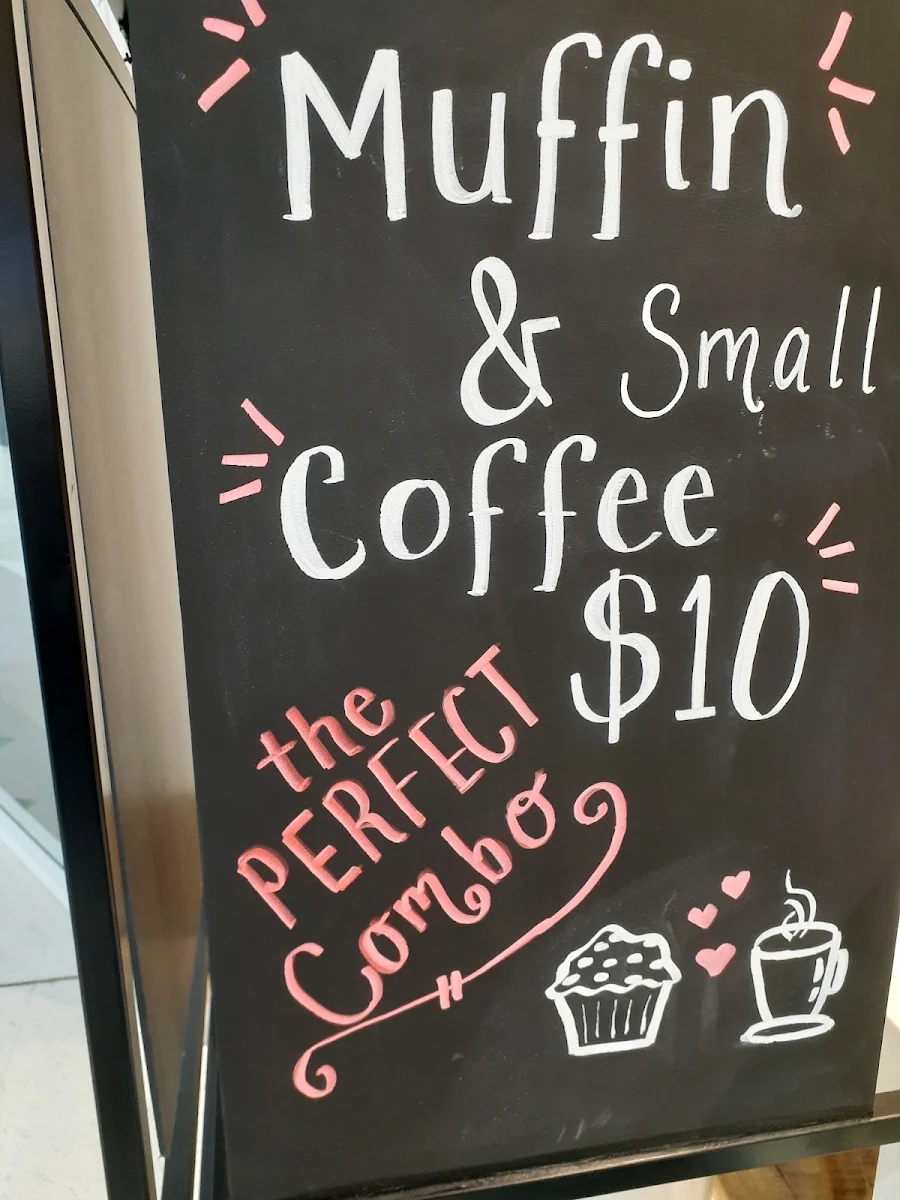 Muffin
& Small
Coffee
$10
the
PERFECT
Combo